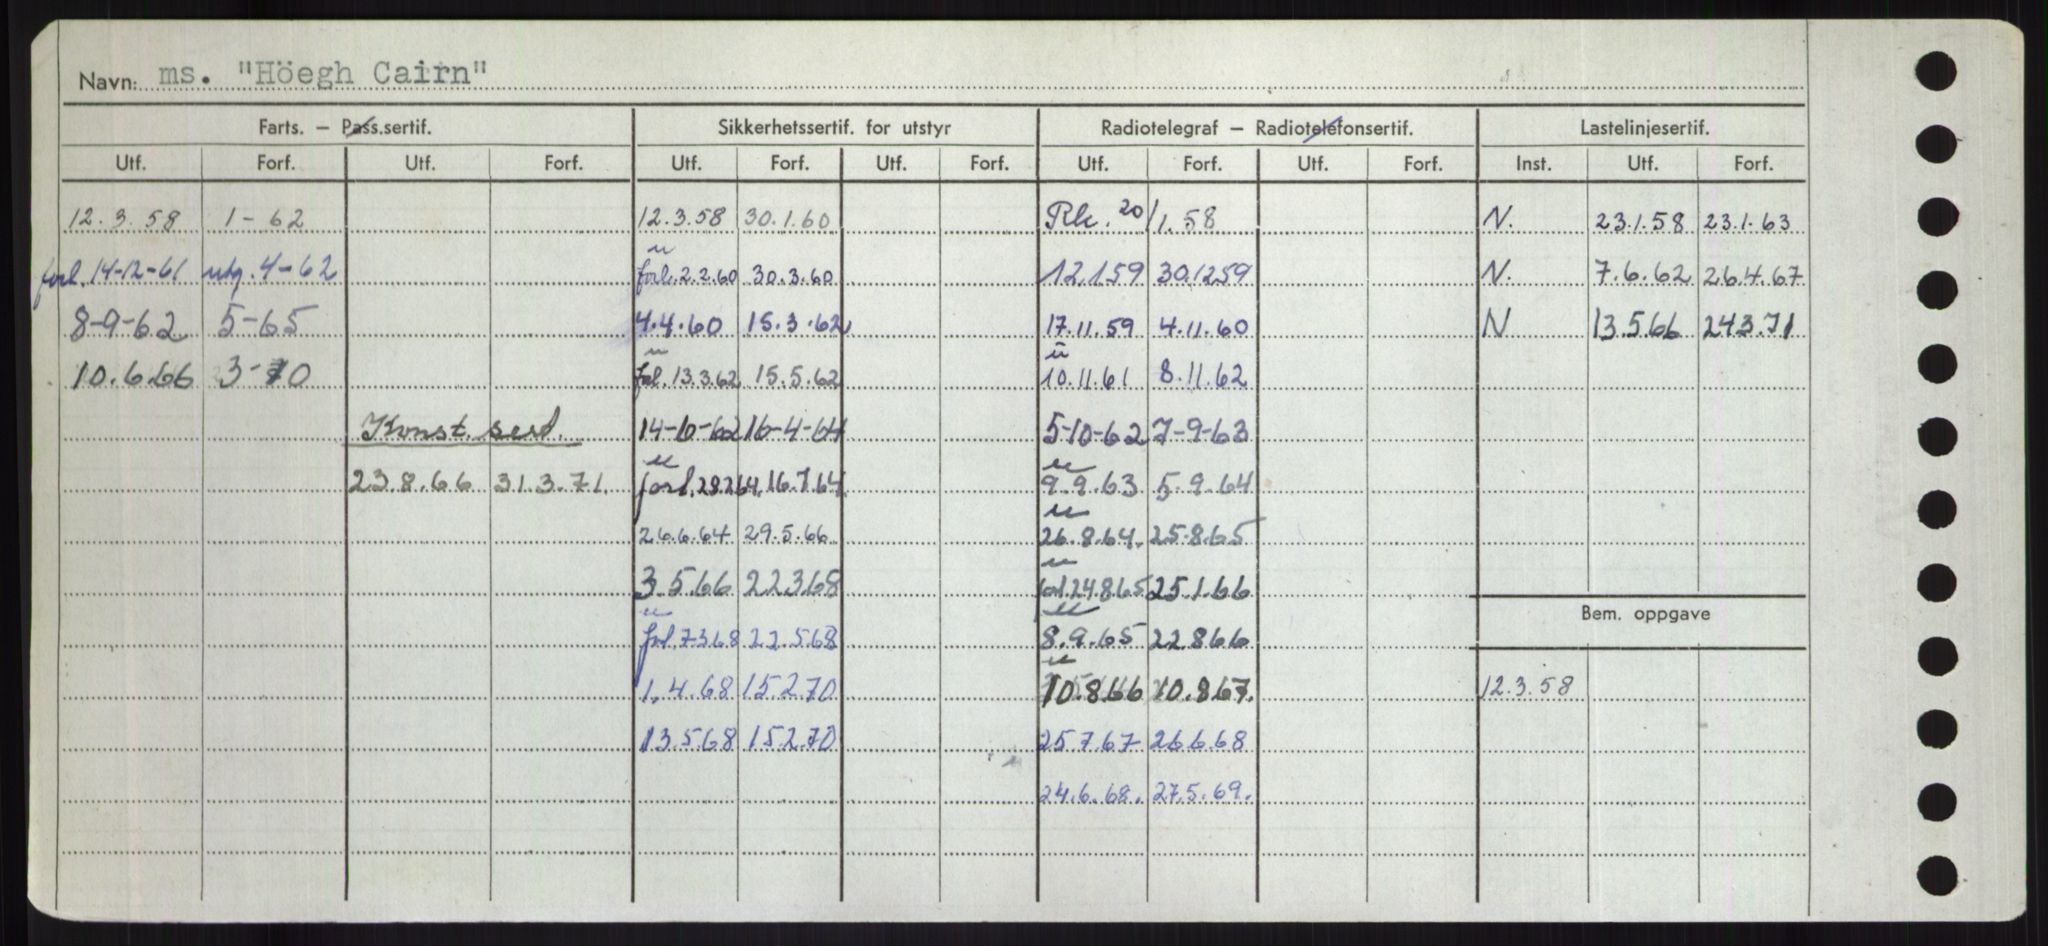 Navn: ms. "Höegh Cairn"
Farts. – Pass.sertif. Sikkerhetssertif. for utstyr Radiotelegraf – Radiotelefonsertif. Lastelinjesertif.
Utf. Forf. Utf. Forf. Utf. Forf. Utf. Forf. Utf. Forf. Utf. Forf. Inst. Utf. Forf.
12.3.58 1-62 12.3.58 30.1.60 Rk. 20/1.58 N. 23.1.58 23.1.63
forl. 14-12-61 utg. 4-62 forl. 2.2.60 30.3.60 12.1.59 30.12.59 N. 7.6.62 26.4.67
8-9-62 5-65 4.4.60 15.3.62 17.11.59 4.11.60 N 13.5.66 24.3.71
10.6.66 3-70 forl. 13.3.62 15.5.62 10.11.61 8.11.62
Konst. sert. 14-6-62 16-4-64 5-10-62 7-9-63
23.8.66 31.3.71. forl. 28.2.64. 16.7.64 9.9.63 5.9.64
26.6.64 29.5.66 26.8.64. 25.8.65
3.5.66 22.3.68 forl. 24.8.65 25.1.66
Bem. oppgave
forl. 7.3.68 22.5.68 8.9.65 22.8.66
1.4.68 15.2.70 10.8.66 10.8.67. 12.3.58
13.5.68 15.2.70 25.7.67 26.6.68
24.6.68. 27.5.69.